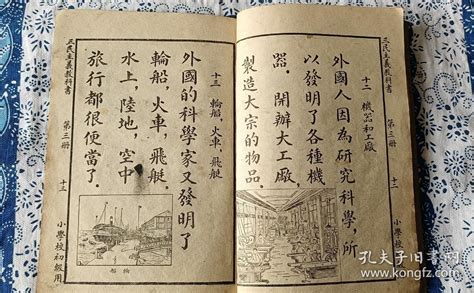 三民主義教科書
第三册
十二
十二 機器和工廠
外國人因為研究科學，所
以發明了各種機
器．開辦大工廠，
製造大宗的物品．
十三 輪船，火車，飛艇
外國的科學家又發明了
輪船，火車，飛艇．
水上，陸地，空中
旅行都很便當了．
船輪
三民主義教科書
第三册
十三
小學校初級用
小學校初級用
孔夫子旧书网
kongfz.com